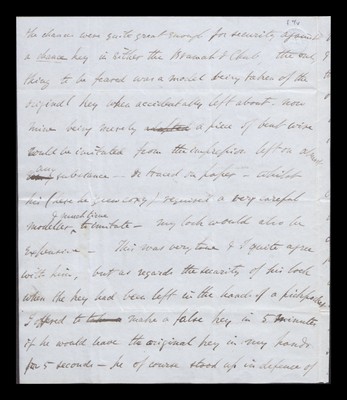 the chances were quite great enough for security against
a chance key in either the Bramah & Chub, the only
thing to be feared was a model being taken of the
original key when accidentally left about. now
mine being merely adapted a piece of bent wire
could be imitated from the impression left on
any substance – or traced on paper – whilst
his required a very careful
modeller & much time to imitate – my lock would also be
expensive – This was very true & I quite agree
with him, but as regards the security of his lock
when the key had been left in the hands of a pickpocket
I offered to make a false key in 5 minutes
if he would leave the original key in my hands
for 5 seconds – he of course stood up in defence of